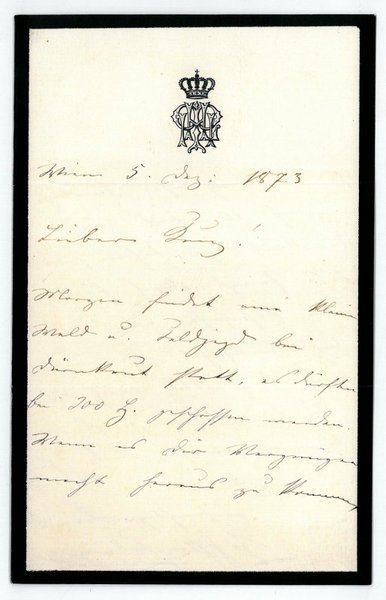 Wien 5. Dez: 1873
Lieber Franz!
Morgen findet eine kleine
Wald u. Feldjagd bei
Dürnkrut statt, es dürften
bei 200 H. geschossen werden.
Wenn es Dir Vergnügen
macht heraus zu kommen,